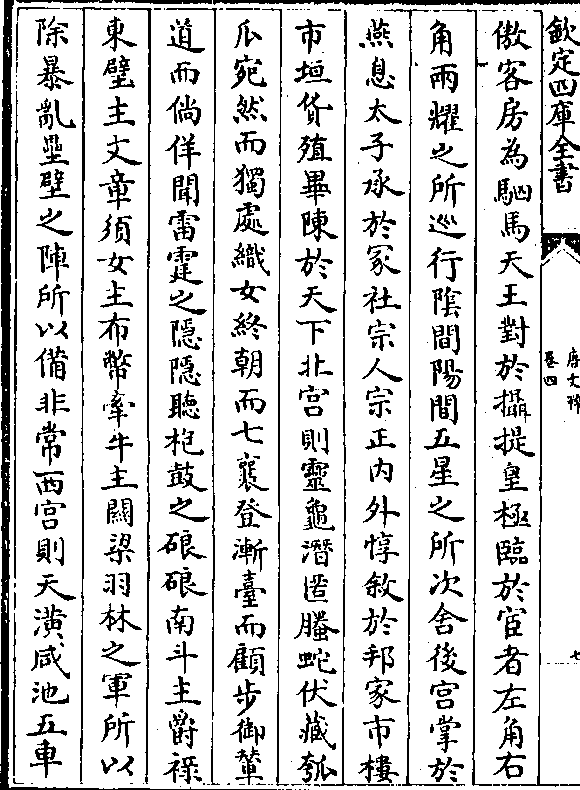 欽定四庫全書
唐文粹
卷四
七
傲客房為駟馬天王對於攝提皇極臨於宦者左角右
角兩耀之所巡行陰間陽間五星之所次舍後宫掌於
燕息太子承於冢社宗人宗正内外惇敘於邦家市樓
市垣貨殖畢陳於天下北宫則靈龜潛匿螣蛇伏藏瓠
瓜宛然而獨處織女終朝而七襄登漸臺而顧步御輦
道而倘佯聞雷霆之隱隱聽枹鼓之硠硠南斗主爵祿
東壁主文章須女主布幣牽牛主關梁羽林之軍所以
除暴亂壘壁之陣所以備非常西宫則天潢咸池五車